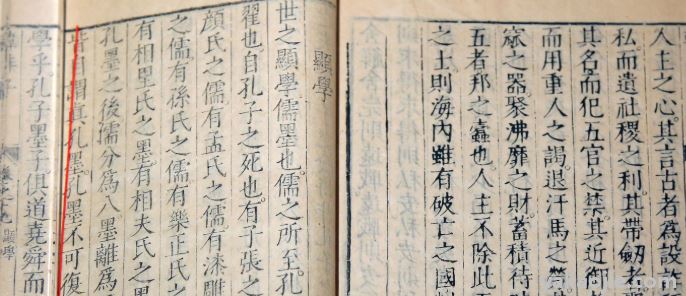 人主之心其言古者為設詐
私而遺社稷之利其帶劒者
其名而犯五官之禁其近御
而用重人之謁退汗馬之勞
窳之器聚沸靡之財蓄積待
五者邦之蠹也人主不除此
之士則海內雖有破亡之國
顯學
世之顯學儒墨也儒之所至孔
翟也自孔子之死也有子張之
顏氏之儒有孟氏之儒有漆雕
之儒有孫氏之儒有樂正氏之
有相里氏之墨有相夫氏之
孔墨之後儒分為八墨離為
謂真孔墨孔墨不可復
學乎孔子墨子俱道堯舜而
顯學